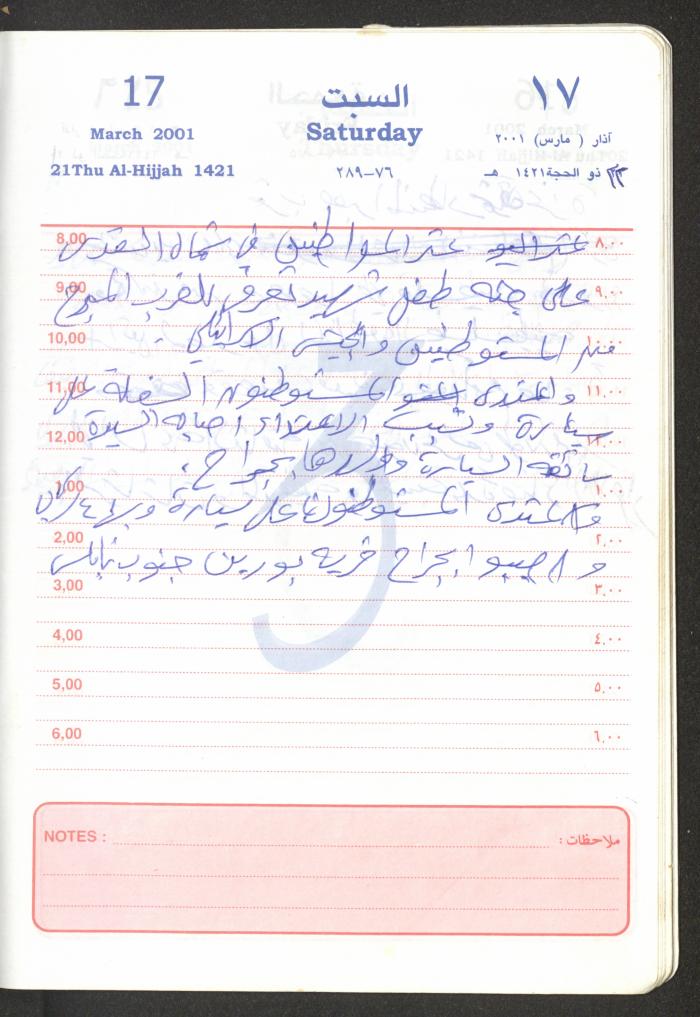 17 السبت ١٧
March 2001 Saturday آذار ( مارس ) ٢٠٠١
21Thu Al-Hijjah 1421 ٢٨٩-٧٦ ٢٢ ذو الحجة ١٤٢١ هـ
8,00 عثر اليو عثر المواطنين في شمال القدس ٨,٠٠
9,00 على جثة طفل شهيد تعرض للضرب المبرح ٩,٠٠
10,00 من المستوطنين والجيش الاسرائيلي . ١٠,٠٠
11,00 واعتدى المستوطنون السفلة على ١١,٠٠
12,00 سيارة وتسبب الاعتداء اصابة السيدة ١٢,٠٠
1,00 سائقة السيارة وولدها بجراح . ١,٠٠
واعتدى المستوطنون على سيارة
2,00 ٢,٠٠
واصيبوا بجراح قرية بورين جنوب نابلس
3,00 ٣,٠٠
4,00 ٤,٠٠
5,00 ٥,٠٠
6,00 ٦,٠٠
NOTES : ملاحظات :